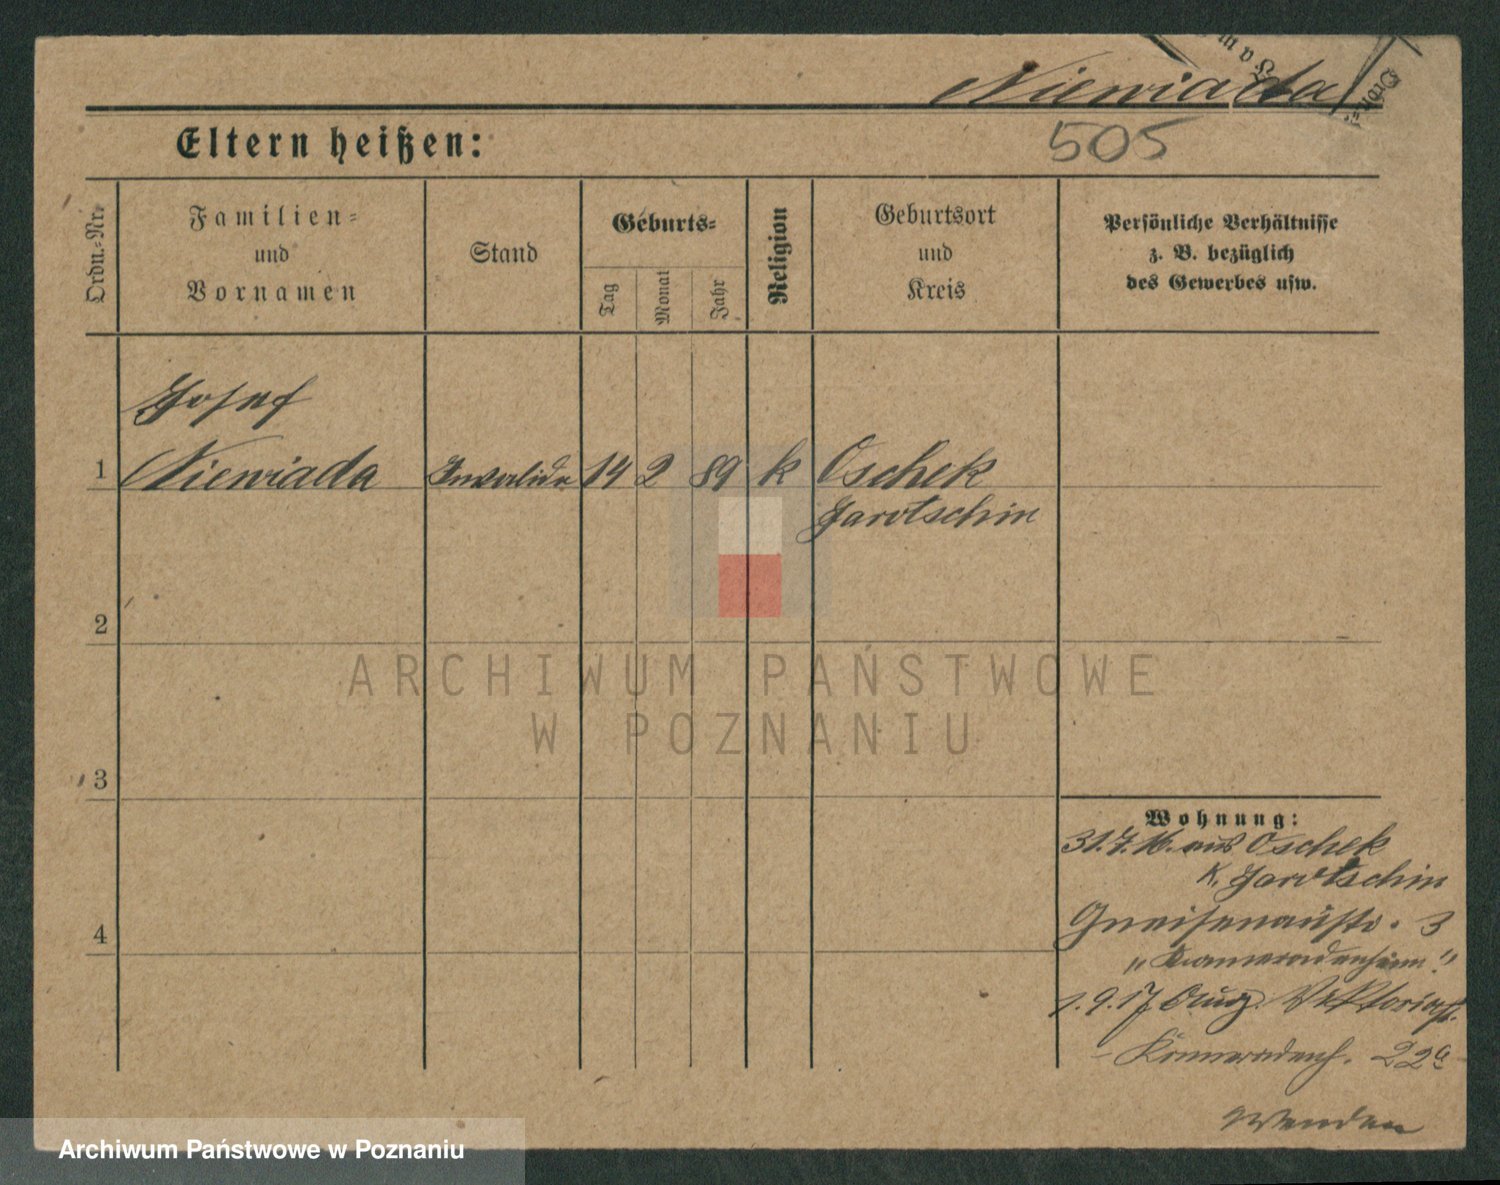 Niewiada
505
Eltern heißen:
Ordn.-Nr.
Familien-
und
Vornamen
Stand
Geburts-
Tag
Monat
Jahr
Religion
Geburtsort
und
Kreis
Persönliche Verhältnisse
z. B. bezüglich
des Gewerbes usw.
Josef
1 Niewiada Invalide 14 2 89 k Oschek
Jarotschin
2
3
4
Wohnung:
31.7.16. aus Oschek
K. Jarotschin
Gneisenaustr. 3
"Kameradenheim"
1.9.17 Viktoriast.
22a
Wenden
ARCHIWUM PAŃSTWOWE
W POZNANIU
Archiwum Państwowe w Poznaniu